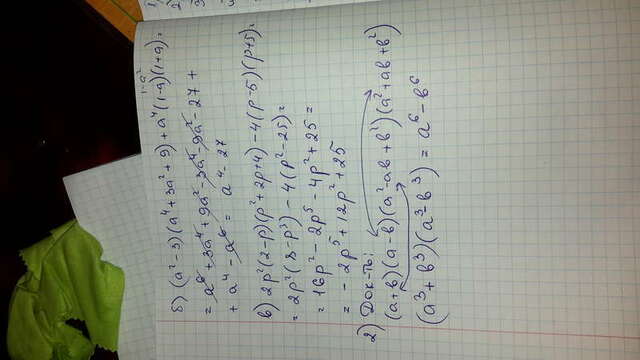 1-a²
б) (a²-3)(a⁴+3a²+9)+a⁴(1-a)(1+a)=
= a⁶+3a⁴+9a²-3a⁴-9a²-27+
+ a⁴-a⁶ = a⁴-27
в) 2p²(2-p)(p²+2p+4)-4(p-5)(p+5)=
= 2p²(8-p³)-4(p²-25)=
= 16p²-2p⁵-4p²+25 =
= -2p⁵+12p²+25
2) Док-ть:
(a+b)(a-b)(a²-ab+b²)(a²+ab+b²)
(a³+b³)(a³-b³) = a⁶-b⁶